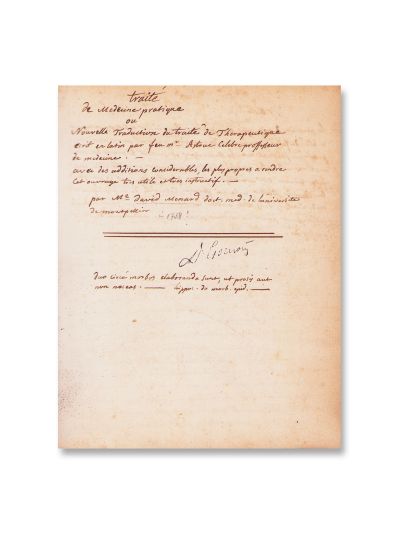 traité
de Medecine pratique
ou
Nouvelle Traduction du traité de Therapeutique
ecrit en latin par feu mr. Astruc Celebre professeur
de medecine. —
avec des additions considerables, les plus propres a rendre
cet ouvrage tres utile et tres instructif. —
par Mr. David Menard doct. med. de luniversité
de montpellier
duo circa morbos elaboranda sunt, ut prosis aut
non noceas. — hippoc. de morb. epid. —